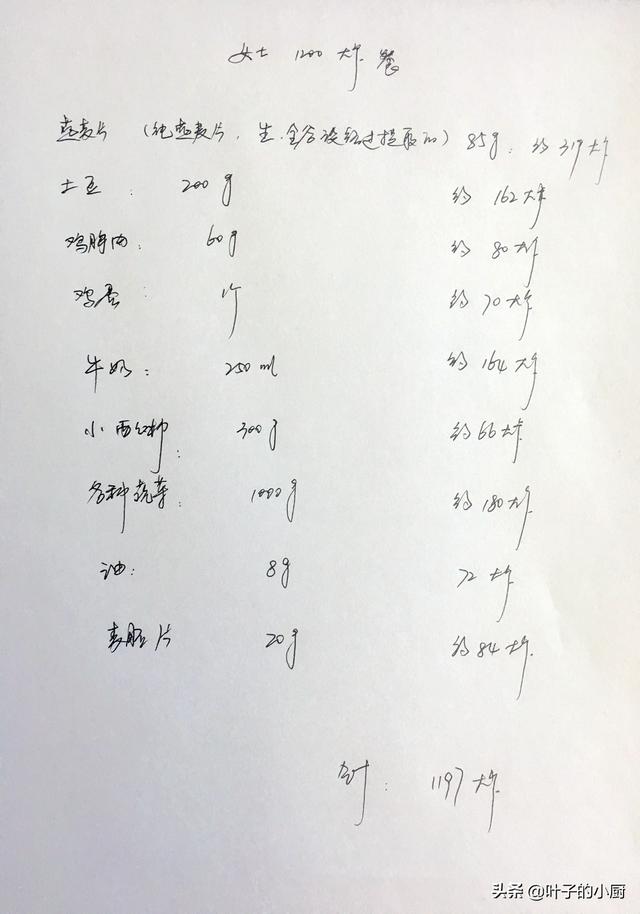 女士 1200大卡餐
燕麦片 (纯燕麦片，生，全谷没经过提取的) 85g：约319大卡
土豆： 200g 约162大卡
鸡胸肉： 60g 约80大卡
鸡蛋： 1个 约70大卡
牛奶： 250ml 约164大卡
小西红柿： 300g 约66大卡
各种蔬菜： 1000g 约180大卡
油： 8g 72大卡
麦胚片 20g 约84大卡
合计： 1197大卡
头条 @叶子的小厨